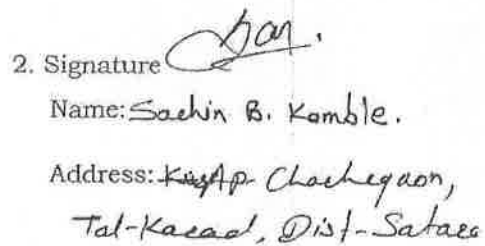 2. Signature
Name: Sachin B. Kamble.
Address: A/p- Chachegaon,
Tal-Karad, Dist-Satara